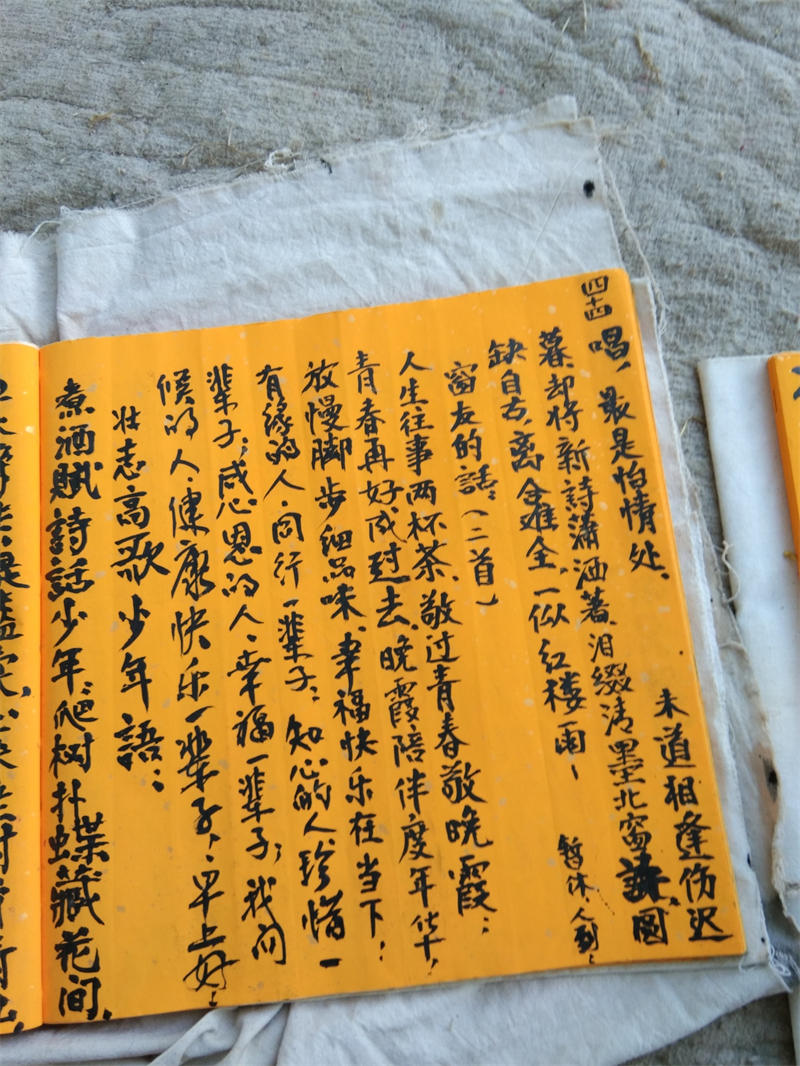 四十四
唱，最是怡情处、 未道相逢伤迟
暮、却将新詩瀟洒著、泪缀清墨北窗 圆
缺自古、离合难全、一似红楼雨、 暂休、人到、
窗友的話；(二首)
人生往事两杯茶、敬过青春敬晚霞；
青春再好成过去、晚霞陪伴度年华、
放慢脚步细品味、幸福快乐在当下；
有缘的人、同行一辈子；知心的人珍惜一
辈子；感恩的人、幸福一辈子；我问
候的人、健康快乐一辈子，早上好；
壮志高歌少年語；
煮酒赋詩話少年；爬树扑蝶藏花间、